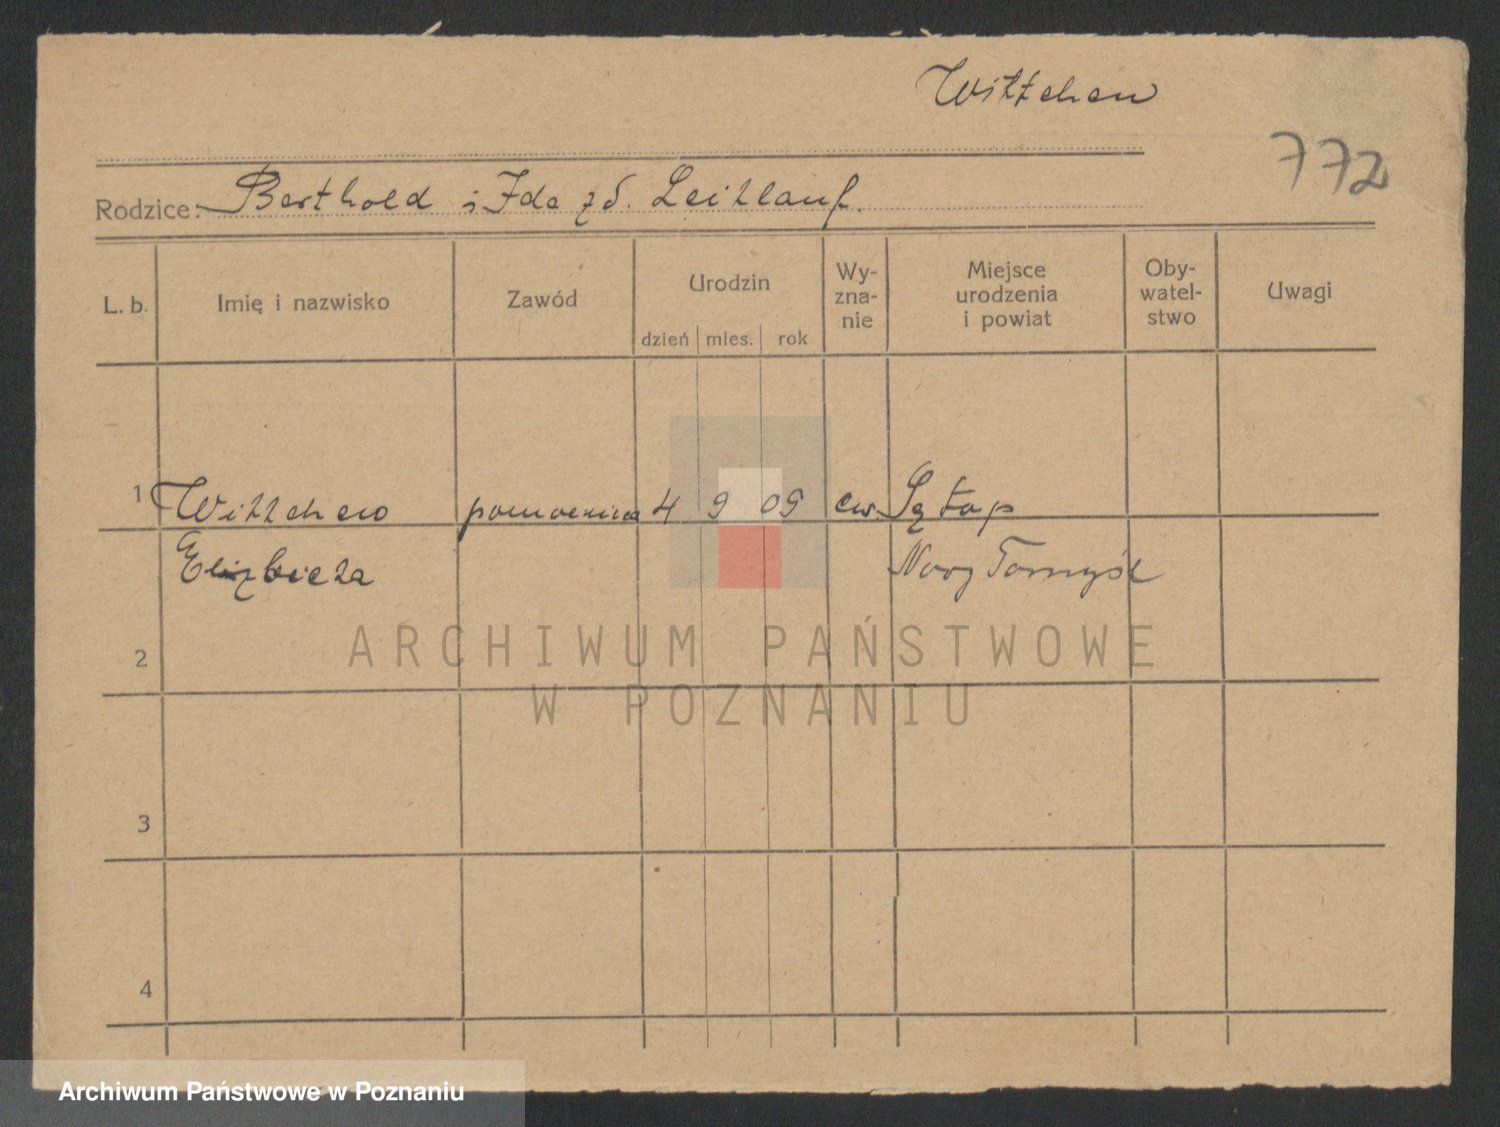 Wittchen
772
Rodzice: Berthold i Ida zd. Leitlauf.
L. b. Imię i nazwisko Zawód Urodzin dzień mies. rok Wy-zna-nie Miejsce urodzenia i powiat Oby-watel-stwo Uwagi
1 Wittchen pomocnica 4 9 09 ew. Sątop
Elżbieta Nowy Tomyśl
2
ARCHIWUM PAŃSTWOWE
W POZNANIU
3
4
Archiwum Państwowe w Poznaniu